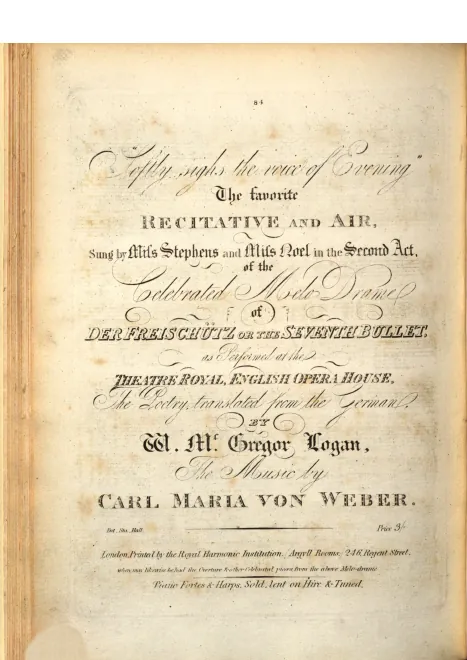 84
"Softly sighs the voice of Evening"
The favorite
RECITATIVE AND AIR,
Sung by Miss Stephens and Miss Noel in the Second Act,
of the
Celebrated Melo Drame
of
DER FREISCHÜTZ OR THE SEVENTH BULLET,
as Performed at the
THEATRE ROYAL, ENGLISH OPERA HOUSE,
The Poetry, translated from the German,
BY
W. Mc. Gregor Logan,
The Music by
CARL MARIA VON WEBER.
Ent. Sta. Hall. Price 3/-
London, Printed by the Royal Harmonic Institution, Argyll Rooms, 246, Regent Street,
where may likewise be had the Overture & other Celebrated pieces from the above Melo-drame
Piano Fortes & Harps, Sold, lent on Hire & Tuned.